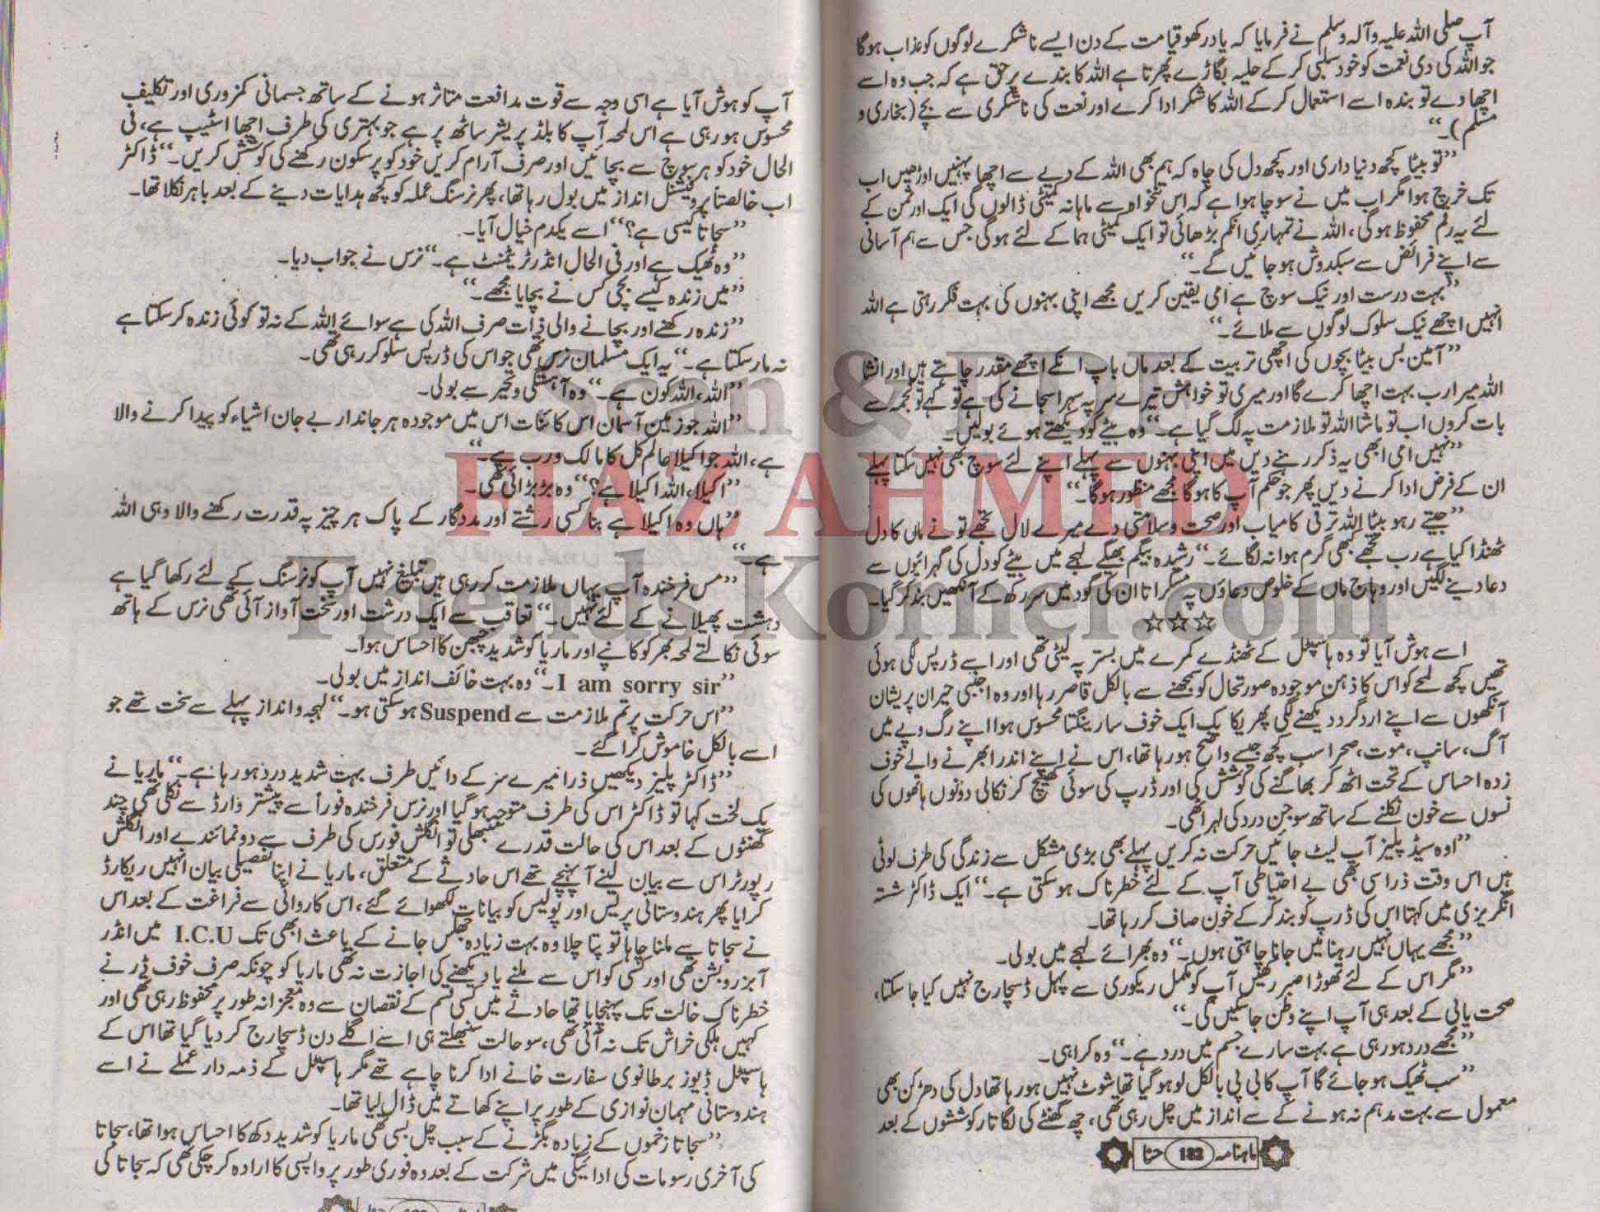 آپ صلی اللہ علیہ وآلہ وسلم نے فرمایا کہ یاد رکھو قیامت کے دن ایسے ناشکرے لوگوں کو عذاب ہوگا
جو اللہ کی دی نعمت کو خود سلبی کر کے حلیہ بگاڑے پھرتا ہے اللہ کا بندے پر حق ہے کہ جب وہ اسے
اچھا دے تو بندہ اسے استعمال کر کے اللہ کا شکر ادا کرے اور نعت کی ناشکری سے بچے (بخاری و
مسلم)۔"
"تو بیٹا کچھ دنیا داری اور کچھ دل کی چاہ کہ ہم بھی اللہ کے دیے سے اچھا پہنیں اوڑھیں اب
تک خرچ ہوا مگر اب میں نے سوچا ہوا ہے کہ اس تنخواہ سے ماہانہ کمیٹی ڈالوں گی ایک اور ثمن کے
لئے یہ رقم محفوظ ہوگی، اللہ نے تمہاری انکم بڑھائی تو ایک کمیٹی ہما کے لئے ہوگی جس سے ہم آسانی
سے اپنے فرائض سے سبکدوش ہو جائیں گے۔"
"بہت درست اور نیک سوچ ہے امی یقین کریں مجھے اپنی بہنوں کی بہت فکر رہتی ہے اللہ
انہیں اچھے نیک سلوک لوگوں سے ملائے۔"
"آمین بس بیٹا بچوں کی اچھی تربیت کے بعد ماں باپ انکے اچھے مقدر چاہتے ہیں اور انشا
اللہ میرا رب بہت اچھا کرے گا اور میری تو خواہش تیرے سر پہ سہرا سجانے کی ہے تو کہے تو نجمہ سے
بات کروں اب تو ماشا اللہ تو ملازمت پہ لگ گیا ہے۔" وہ بیٹے کو دیکھتے ہوئے بولیں۔
"نہیں امی ابھی یہ ذکر رہنے دیں میں اپنی بہنوں سے پہلے اپنے لئے سوچ بھی نہیں سکتا پہلے
ان کے فرض ادا کرنے دیں پھر جو حکم آپ کا ہوگا مجھے منظور ہوگا۔"
"جیتے رہو بیٹا اللہ ترقی کامیاب اور صحت و سلامتی دے میرے لال تجھے تو نے ماں کا دل
ٹھنڈا کیا ہے رب تجھے کبھی گرم ہوا نہ لگائے۔" رشیدہ بیگم بھیگے لہجے میں بیٹے کو دل کی گہرائیوں سے
دعا دینے لگیں اور وہاج ماں کے خلوص دعاؤں پہ مسکراتا ان کی گود میں سر رکھ کے آنکھیں بند کر گیا۔
☆☆☆
اسے ہوش آیا تو وہ ہاسپٹل کے ٹھنڈے کمرے میں بستر پہ لیٹی تھی اور اسے ڈرپس لگی ہوئی
تھیں کچھ لمحے کو اس کا ذہن موجودہ صورتحال کو سمجھنے سے بالکل قاصر رہا اور وہ اجنبی حیران پریشان
آنکھوں سے اپنے ارد گرد دیکھنے لگی پھر یکا یک ایک خوف سا رینگتا محسوس ہوا اپنے رگ و پے میں
آگ، سانپ، موت، صحرا سب کچھ جیسے واضح ہو رہا تھا، اس نے اپنے اندر ابھرنے والے خوف
زدہ احساس کے تحت اٹھ کر بھاگنے کی کوشش کی اور ڈرپ کی سوئی کھینچ کر نکالی دونوں ہاتھوں کی
نسوں سے خون نکلنے کے ساتھ سوجن درد کی لہر اٹھی۔
"اوہ سیڈ پلیز آپ لیٹ جائیں حرکت نہ کریں پہلے بھی بڑی مشکل سے زندگی کی طرف لوٹی
ہیں اس وقت ذرا سی بھی بے احتیاطی آپ کے لئے خطرناک ہو سکتی ہے۔" ایک ڈاکٹر شستہ
انگریزی میں کہتا اس کی ڈرپ کو بند کر کے خون صاف کر رہا تھا۔
"مجھے یہاں نہیں رہنا میں جانا چاہتی ہوں۔" وہ بھرائے لہجے میں بولی۔
"مگر اس کے لئے تھوڑا صبر رکھیں آپ کو مکمل ریکوری سے پہل ڈسچارج نہیں کیا جا سکتا،
صحت یابی کے بعد ہی آپ اپنے وطن جا سکیں گی۔"
"مجھے درد ہو رہی ہے بہت سارے جسم میں درد ہے۔" وہ کراہی۔
"سب ٹھیک ہو جائے گا آپ کا بی پی بالکل لو ہو گیا تھا شوٹ نہیں ہو رہا تھا دل کی دھڑکن بھی
معمول سے بہت مدہم نہ ہونے کے سے انداز میں چل رہی تھی، چھ گھنٹے کی لگاتار کوششوں کے بعد
ماہنامہ 182 حنا
آپ کو ہوش آیا ہے اسی وجہ سے قوت مدافعت متاثر ہونے کے ساتھ جسمانی کمزوری اور تکلیف
محسوس ہو رہی ہے اس لمحہ آپ کا بلڈ پریشر ساٹھ پر ہے جو بہتری کی طرف اچھا اسٹیپ ہے، فی
الحال خود کو ہر سوچ سے بچائیں اور صرف آرام کریں خود کو پرسکون رکھنے کی کوشش کریں۔" ڈاکٹر
اب خالصتاً پروفیشنل انداز میں بول رہا تھا، پھر نرسنگ عملہ کو کچھ ہدایات دینے کے بعد باہر نکلا تھا۔
"سجاتا کیسی ہے؟" اسے یکدم خیال آیا۔
"وہ ٹھیک ہے اور فی الحال انڈر ٹریٹمنٹ ہے۔" نرس نے جواب دیا۔
"میں زندہ کیسے بچی کس نے بچایا مجھے۔"
"زندہ رکھنے اور بچانے والی ذات صرف اللہ کی ہے سوائے اللہ کے نہ تو کوئی زندہ کر سکتا ہے
نہ مار سکتا ہے۔" یہ ایک مسلمان نرس تھی جو اس کی ڈرپس سلو کر رہی تھی۔
"اللہ، اللہ کون ہے۔" وہ آہستگی و تحیر سے بولی۔
"اللہ جو زمین آسمان اس کائنات اس میں موجودہ ہر جاندار بے جان اشیاء کو پیدا کرنے والا
ہے، اللہ جو اکیلا عالم کل کا مالک و رب ہے۔"
"اکیلا، اللہ اکیلا ہے؟" وہ بڑبڑائی تھی۔
"ہاں وہ اکیلا ہے بنا کسی رشتے اور مددگار کے پاک ہر چیز پہ قدرت رکھنے والا وہی اللہ
ہے۔"
"مس فرخندہ آپ یہاں ملازمت کر رہی ہیں تبلیغ نہیں آپ کو نرسنگ کے لئے رکھا گیا ہے
دہشت پھیلانے کے لئے نہیں۔" تعاقب سے ایک درشت اور سخت آواز آئی تھی نرس کے ہاتھ
سوئی نکالتے لمحہ بھر کو کانپے اور ماریا کو شدید چبھن کا احساس ہوا۔
"I am sorry sir۔" وہ بہت خائف انداز میں بولی۔
"اس حرکت پر تم ملازمت سے Suspend ہو سکتی ہو۔" لہجہ و انداز پہلے سے سخت تھے جو
اسے بالکل خاموش کرا گئے۔
"ڈاکٹر پلیز دیکھیں ذرا میرے سر کے دائیں طرف بہت شدید درد ہو رہا ہے۔" ماریا نے
یک لخت کہا تو ڈاکٹر اس کی طرف متوجہ ہو گیا اور نرس فرخندہ فوراً سے پیشتر وارڈ سے نکلی تھی چند
گھنٹوں کے بعد اس کی حالت قدرے سنبھلی تو انگلش فورس کی طرف سے دو نمائندے اور انگلش
رپورٹر اس سے بیان لینے آ پہنچے تھے اس حادثے کے متعلق، ماریا نے اپنا تفصیلی بیان انہیں ریکارڈ
کرایا پھر ہندوستانی پریس اور پولیس کو بیانات لکھوائے گئے، اس کاروائی سے فراغت کے بعد اس
نے سجاتا سے ملنا چاہا تو پتا چلا وہ بہت زیادہ جھلس جانے کے باعث ابھی تک I.C.U میں انڈر
آبزرویشن تھی اور کسی کو اس سے ملنے یا دیکھنے کی اجازت نہ تھی ماریا کو چونکہ صرف خوف ڈر نے
خطرناک حالت تک پہنچایا تھا حادثے میں کسی قسم کے نقصان سے وہ معجزانہ طور پر محفوظ رہی تھی اور
کہیں ہلکی خراش تک نہ آئی تھی، سو حالت سنبھلتے ہی اسے اگلے دن ڈسچارج کر دیا گیا تھا اس کے
ہاسپٹل ڈیوز برطانوی سفارت خانے ادا کرنا چاہے تھے مگر ہاسپٹل کے ذمہ دار عملے نے اسے
ہندوستانی مہمان نوازی کے طور پر اپنے کھاتے میں ڈال لیا تھا۔
"سجاتا زخموں کے زیادہ بگڑنے کے سبب چل بسی تھی ماریا کو شدید دکھ کا احساس ہوا تھا، سجاتا
کی آخری رسومات کی ادائیگی میں شرکت کے بعد وہ فوری طور پر واپسی کا ارادہ کر چکی تھی کہ سجاتا کی
Scan & PDF
FIAZ AHMED
Friends Korner.com